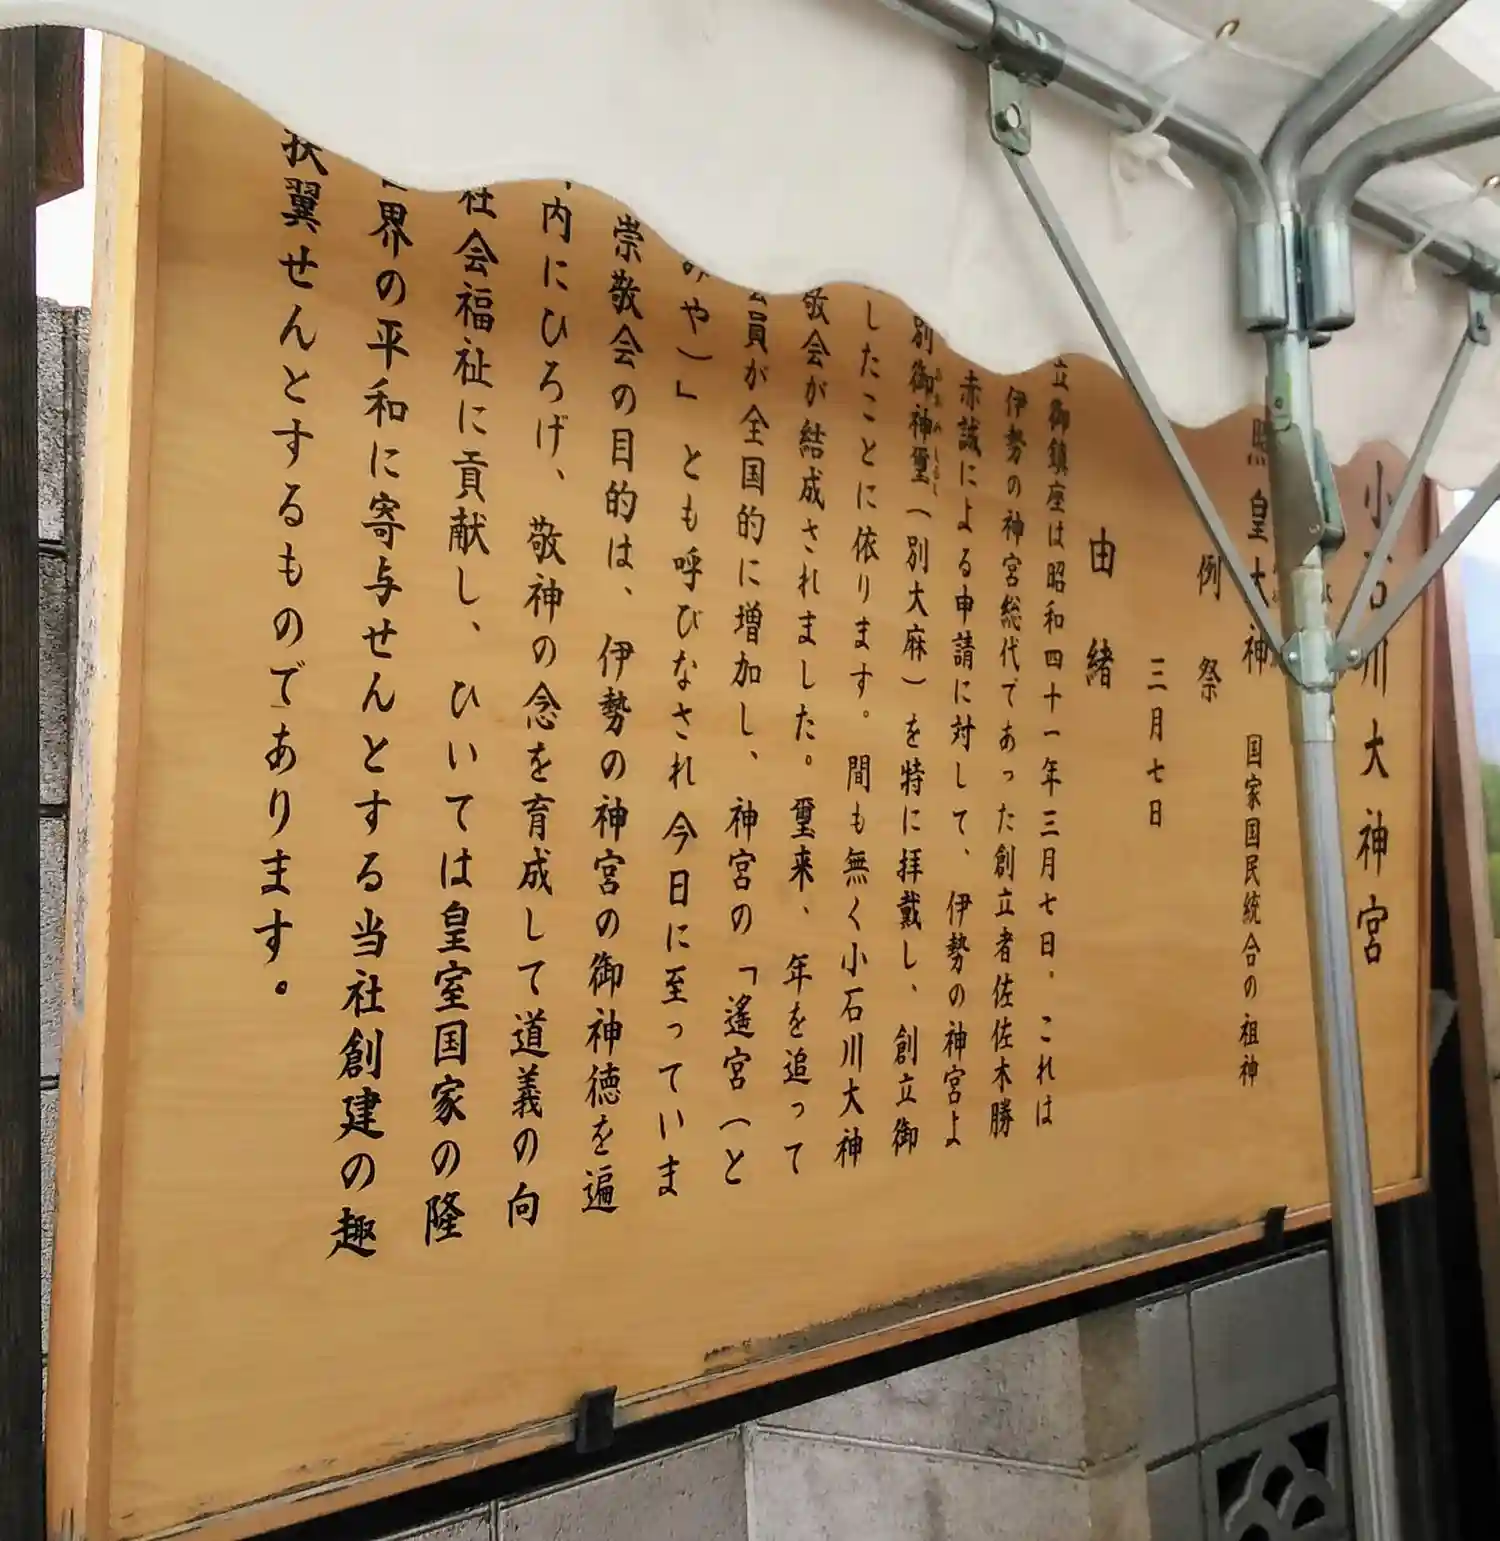 小石川大神宮
照皇大神 国家国民統合の祖神
例祭
三月七日
由緒
立御鎮座は昭和四十一年三月七日。これは
伊勢の神宮総代であった創立者佐佐木勝
赤誠による申請に対して、伊勢の神宮よ
別御神璽(別大麻)を特に拝戴し、創立御
したことに依ります。間も無く小石川大神
敬会が結成されました。璽来、年を追って
会員が全国的に増加し、神宮の「遙宮(と
みや)」とも呼びなされ今日に至っていま
崇敬会の目的は、伊勢の神宮の御神徳を遍
内にひろげ、敬神の念を育成して道義の向
社会福祉に貢献し、ひいては皇室国家の隆
界の平和に寄与せんとする当社創建の趣
扶翼せんとするものであります。